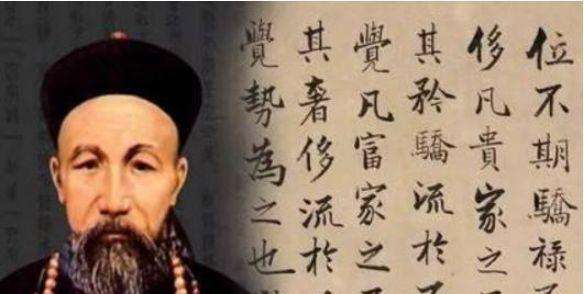 位不期驕祿
侈凡貴家之
其矜驕流於
覺凡富家之
其奢侈流於
覺勢為之也